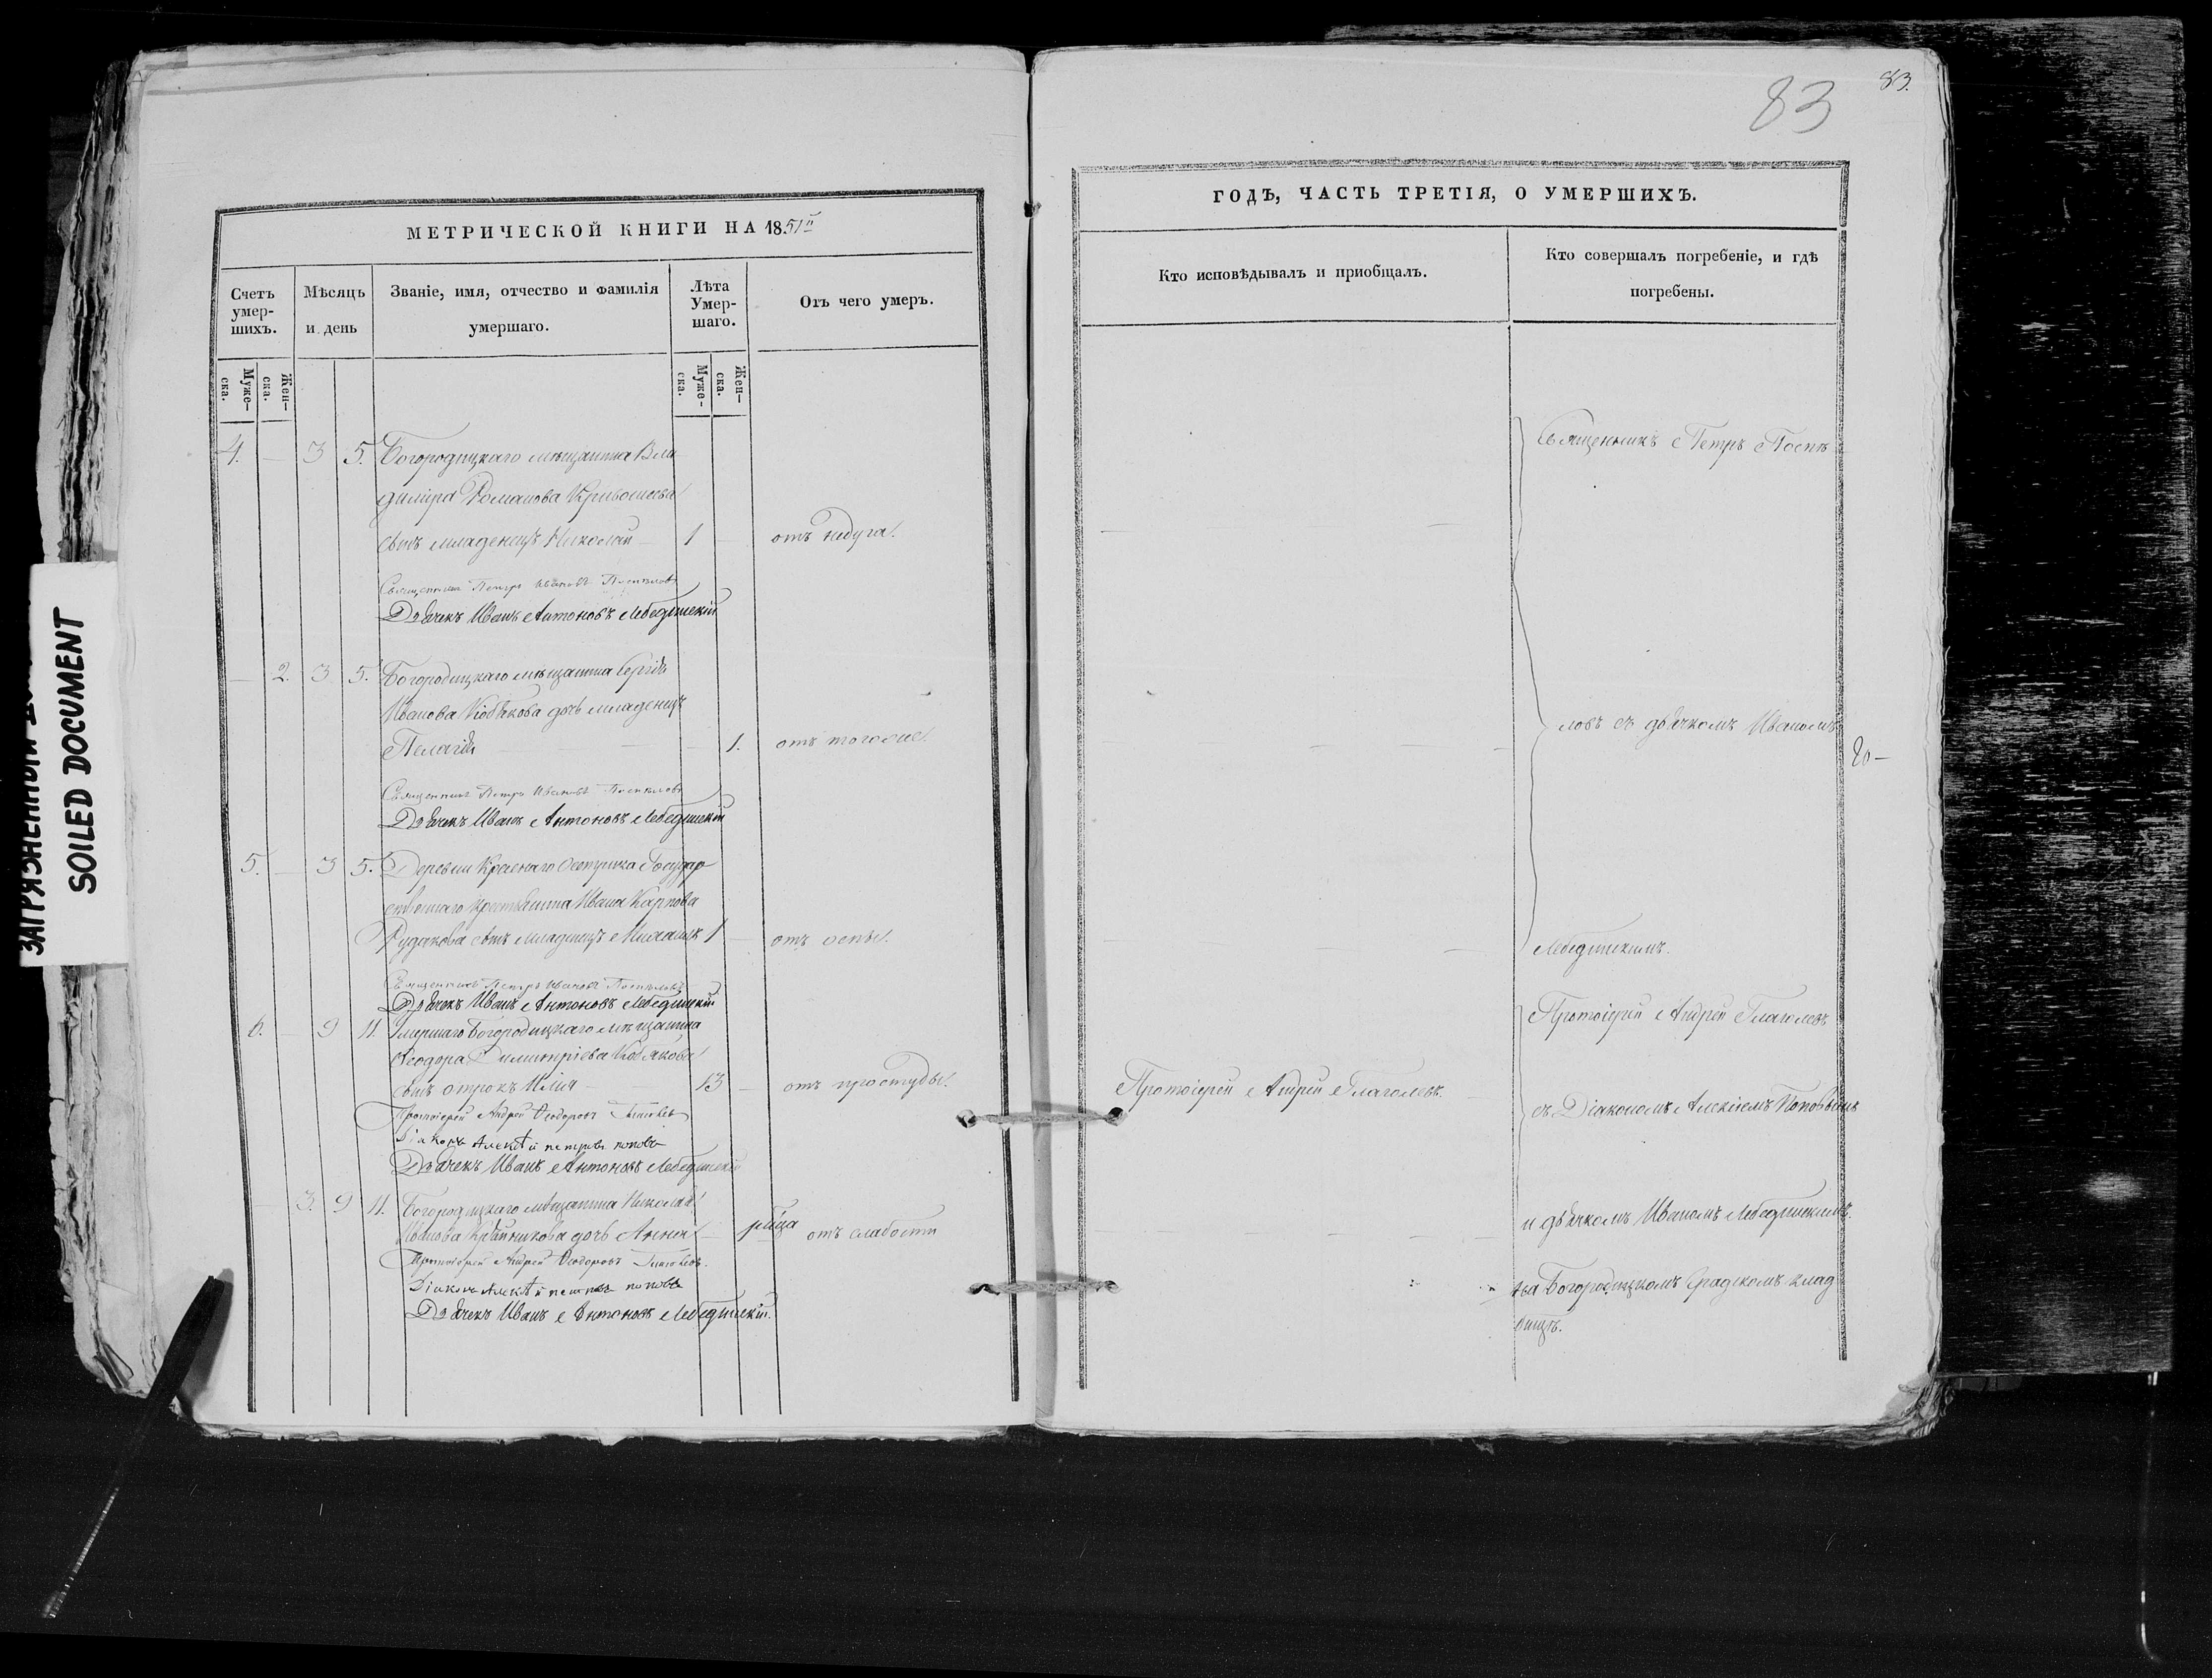 83
83.
ЗАГРЯЗНЕННЫЙ
SOILED DOCUMENT
МЕТРИЧЕСКОЙ КНИГИ НА 1851й
Счетъ умер-шихъ.
Мѣсяцъ и день
Званіе, имя, отчество и фамилія умершаго.
Лѣта Умер-шаго.
Отъ чего умеръ.
Муже-ска.
Жен-ска.
Муже-ска.
Жен-ска.
4. 3 5. Богородицкаго мѣщанина Вла
димира Романова Кривошеева
сынъ младенецъ Николай 1 отъ недуга.
Священникъ Петръ Ивановъ Поспѣловъ
Дьячекъ Иванъ Антоновъ Лебединскій
2. 3 5. Богородицкаго мѣщанина Сергѣя
Иванова Кобякова дочь младенецъ
Пелагія 1. отъ тогоже.
Священникъ Петръ Ивановъ Поспѣловъ
Дьячекъ Иванъ Антоновъ Лебединскій
5. 3 5. Деревни Краснаго Осетрика Государ
ственнаго крестьянина Ивана Карпова
Рудакова сынъ младенецъ Михаилъ 1 отъ оспы.
Священникъ Петръ Ивановъ Поспѣловъ
Дьячекъ Иванъ Антоновъ Лебединскій
6. 9 11. Умершаго Богородицкаго мѣщанина
Ѳеодора Димитріева Кобякова
сынъ отрокъ Илія 13 отъ простуды.
Протоіерей Андрей Ѳеодоровъ Глаголевъ
Діаконъ Алексѣй петровъ поповъ
Дьячекъ Иванъ Антоновъ Лебединскій
3. 9 11. Богородицкаго мѣщанина Николая
Иванова дочь Анна отъ слабости
Протоіерей Андрей Ѳеодоровъ Глаголевъ.
Діаконъ Алексѣй петровъ поповъ
Дьячекъ Иванъ Антоновъ Лебединскій.
ГОДЪ, ЧАСТЬ ТРЕТІЯ, О УМЕРШИХЪ.
Кто исповѣдывалъ и пріобщалъ.
Кто совершалъ погребеніе, и гдѣ
погребены.
Священникъ Петръ Поспѣ
ловъ съ дьячкомъ Иваномъ
Лебединскимъ.
Протоіерей Андрей Глаголевъ
Протоіерей Андрей Глаголевъ.
съ Діакономъ Алексіемъ Поповымъ
и дьячкомъ Иваномъ Лебединскимъ.
на Богородицкомъ Градскомъ клад
бищѣ.